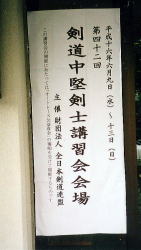 平成十六年六月九日（水）～十三日（日）
第四十二回
剣道中堅剣士講習会会場
主催 財団法人 全日本剣道連盟